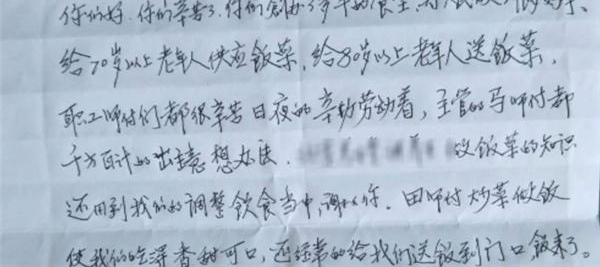 你们好,你们辛苦了,你们创办了多年的食堂,
给70岁以上老年人供应饭菜,给80岁以上老年人送饭菜,
职工师付们都很辛苦日夜的辛勤劳动着,主管的马师付都
千方百计的出主意想办法. 做饭菜的知识
还用到我们的调整饮食当中,谢谢你. 田师付炒菜做饭
使我们吃得香甜可口,还经常的给我们送饭到门口饭来了